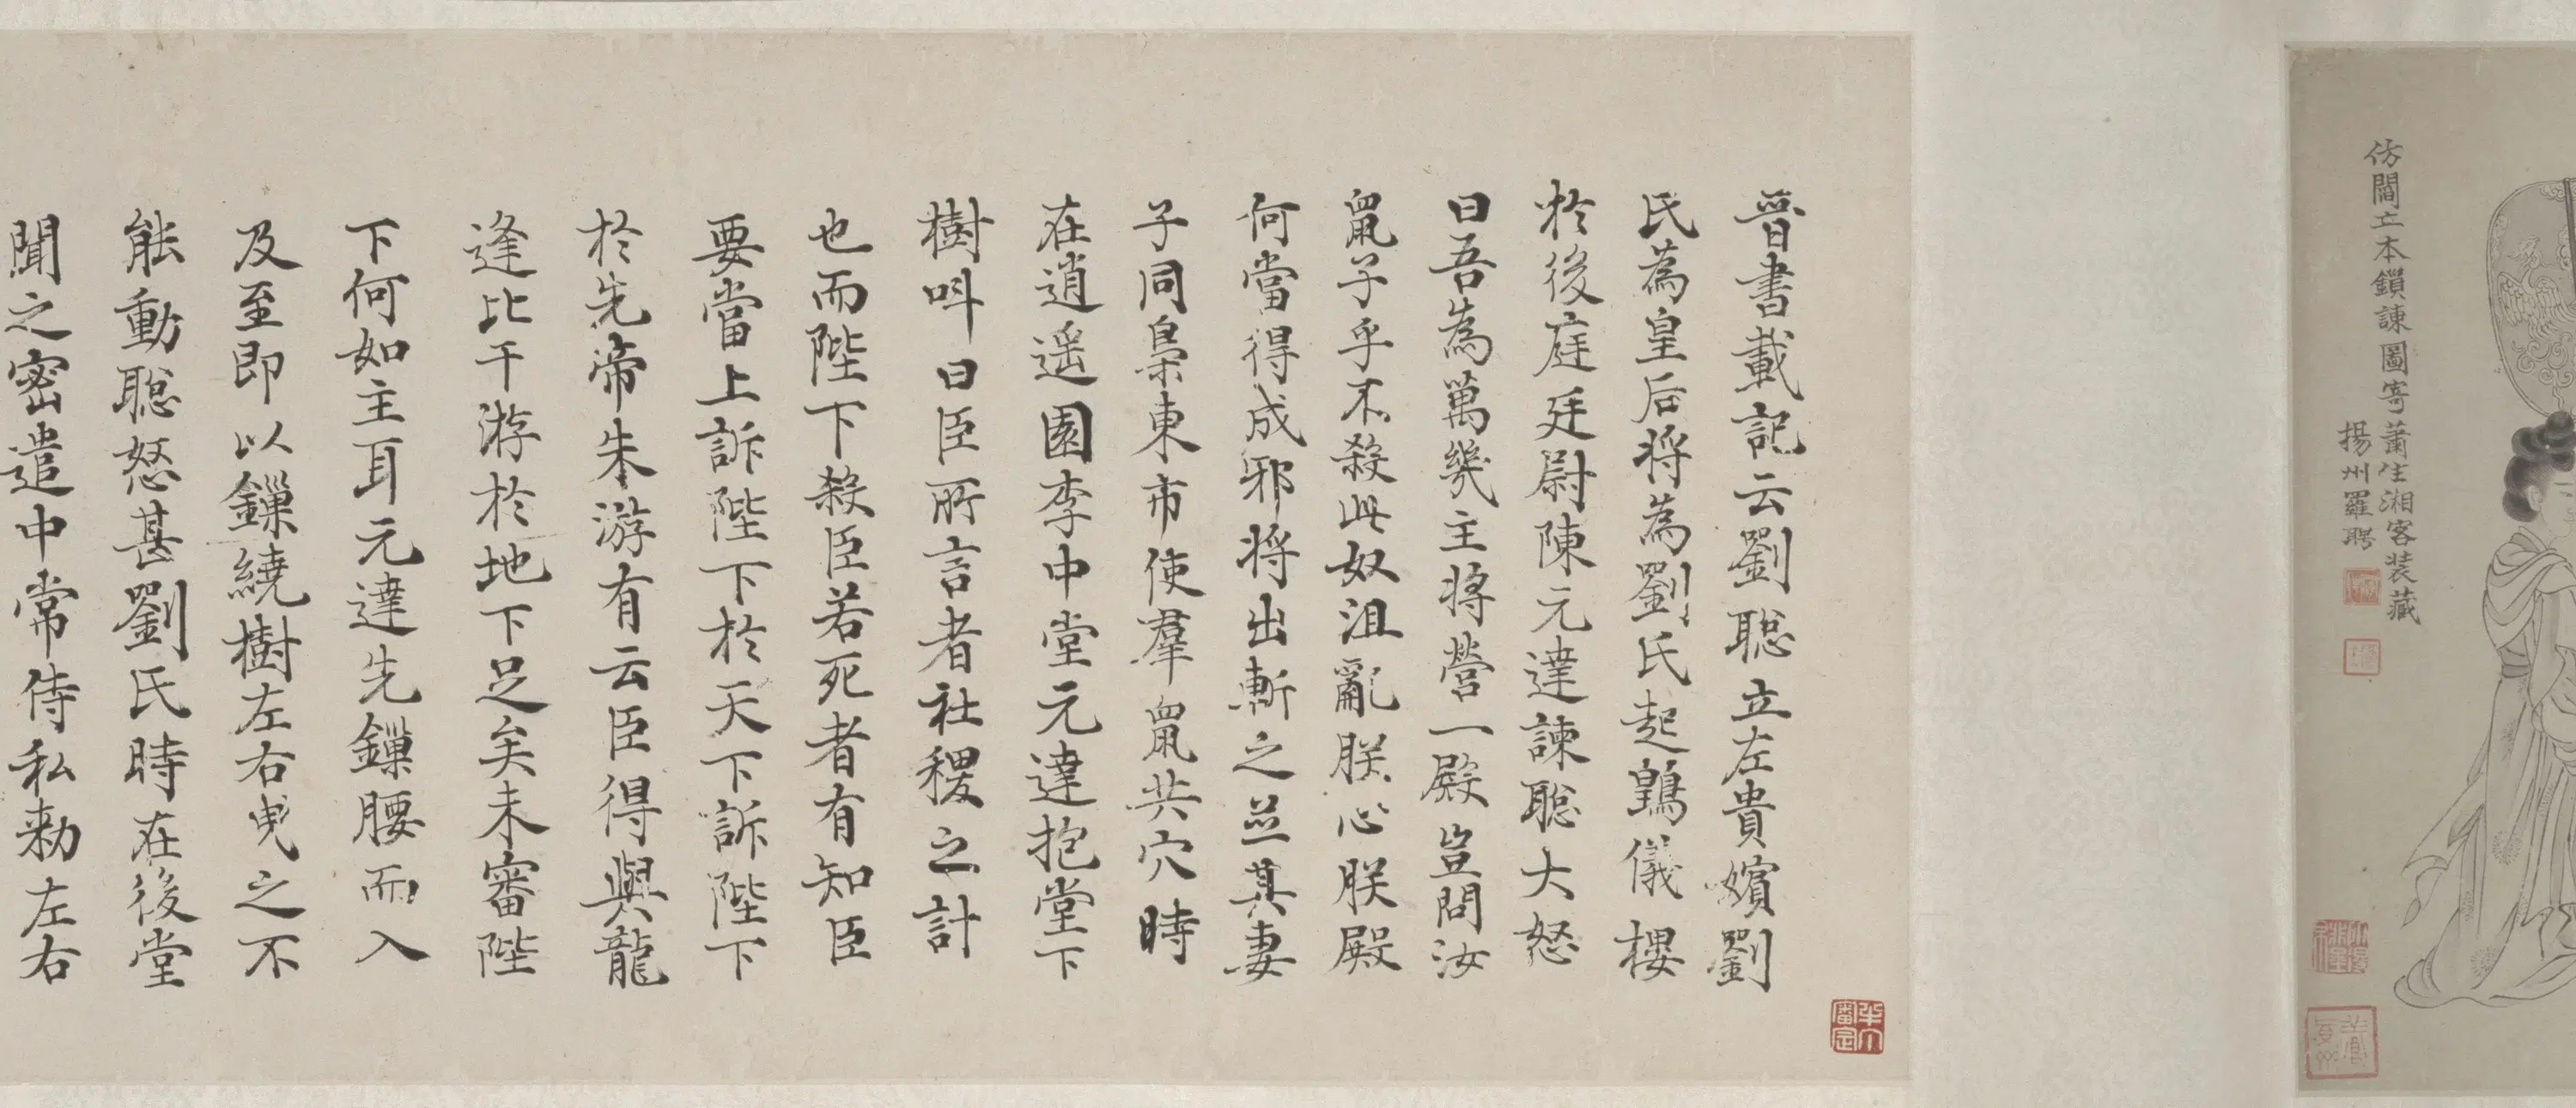 仿閻立本鎖諫圖寄蕭生湘客裝藏
揚州羅聘
晉書載記云劉聰立左貴嬪劉
氏為皇后將為劉氏起䳨儀樓
於後庭廷尉陳元達諫聰大怒
曰吾為萬幾主將營一殿豈問汝
鼠子乎不殺此奴沮亂朕心朕殿
何當得成邪將出斬之並其妻
子同梟東市使羣鼠共穴時
在逍遥園李中堂元達抱堂下
樹叫曰臣所言者社稷之計
也而陛下殺臣若死者有知臣
要當上訴陛下於天下訴陛下
於先帝朱游有云臣得與龍
逢比干游於地下足矣未審陛
下何如主耳元達先鏁腰而入
及至即以鏁繞樹左右曳之不
能動聰怒甚劉氏時在後堂
聞之密遣中常侍私勑左右